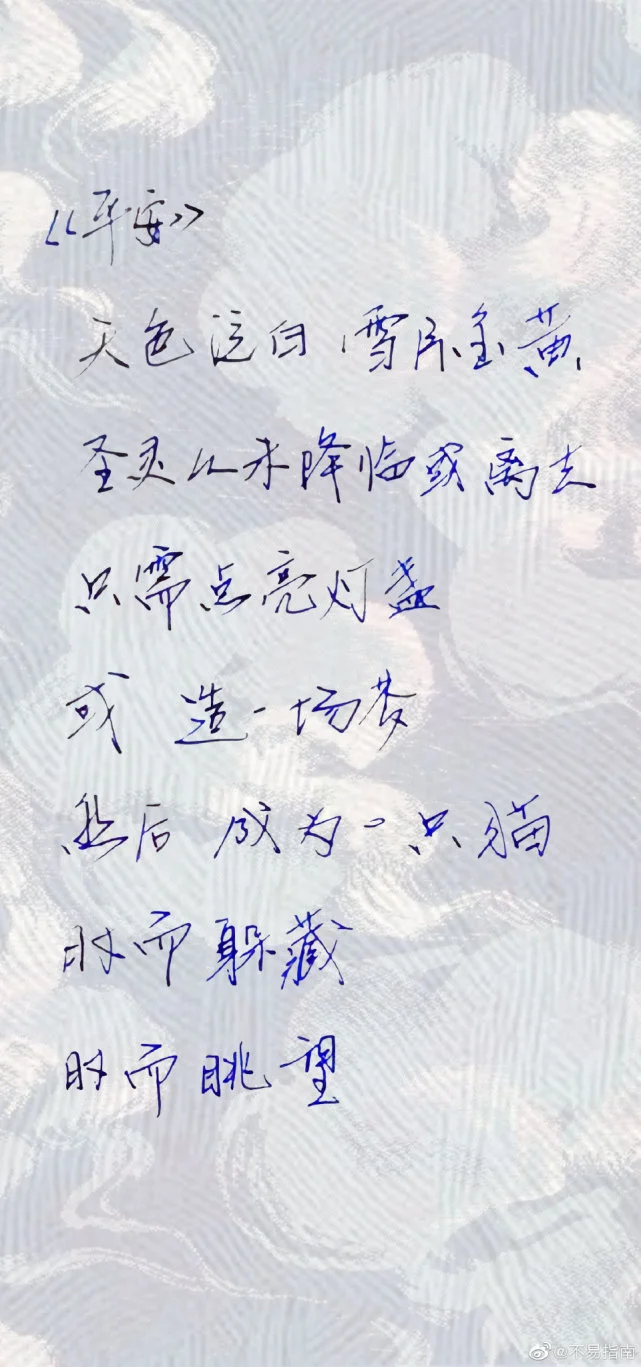 《平安》
天色泛白,雪片金黄
圣灵从未降临或离去
只需点亮灯盏
或 造一场梦
然后 成为一只猫
时而躲藏
时而眺望
@不易指南